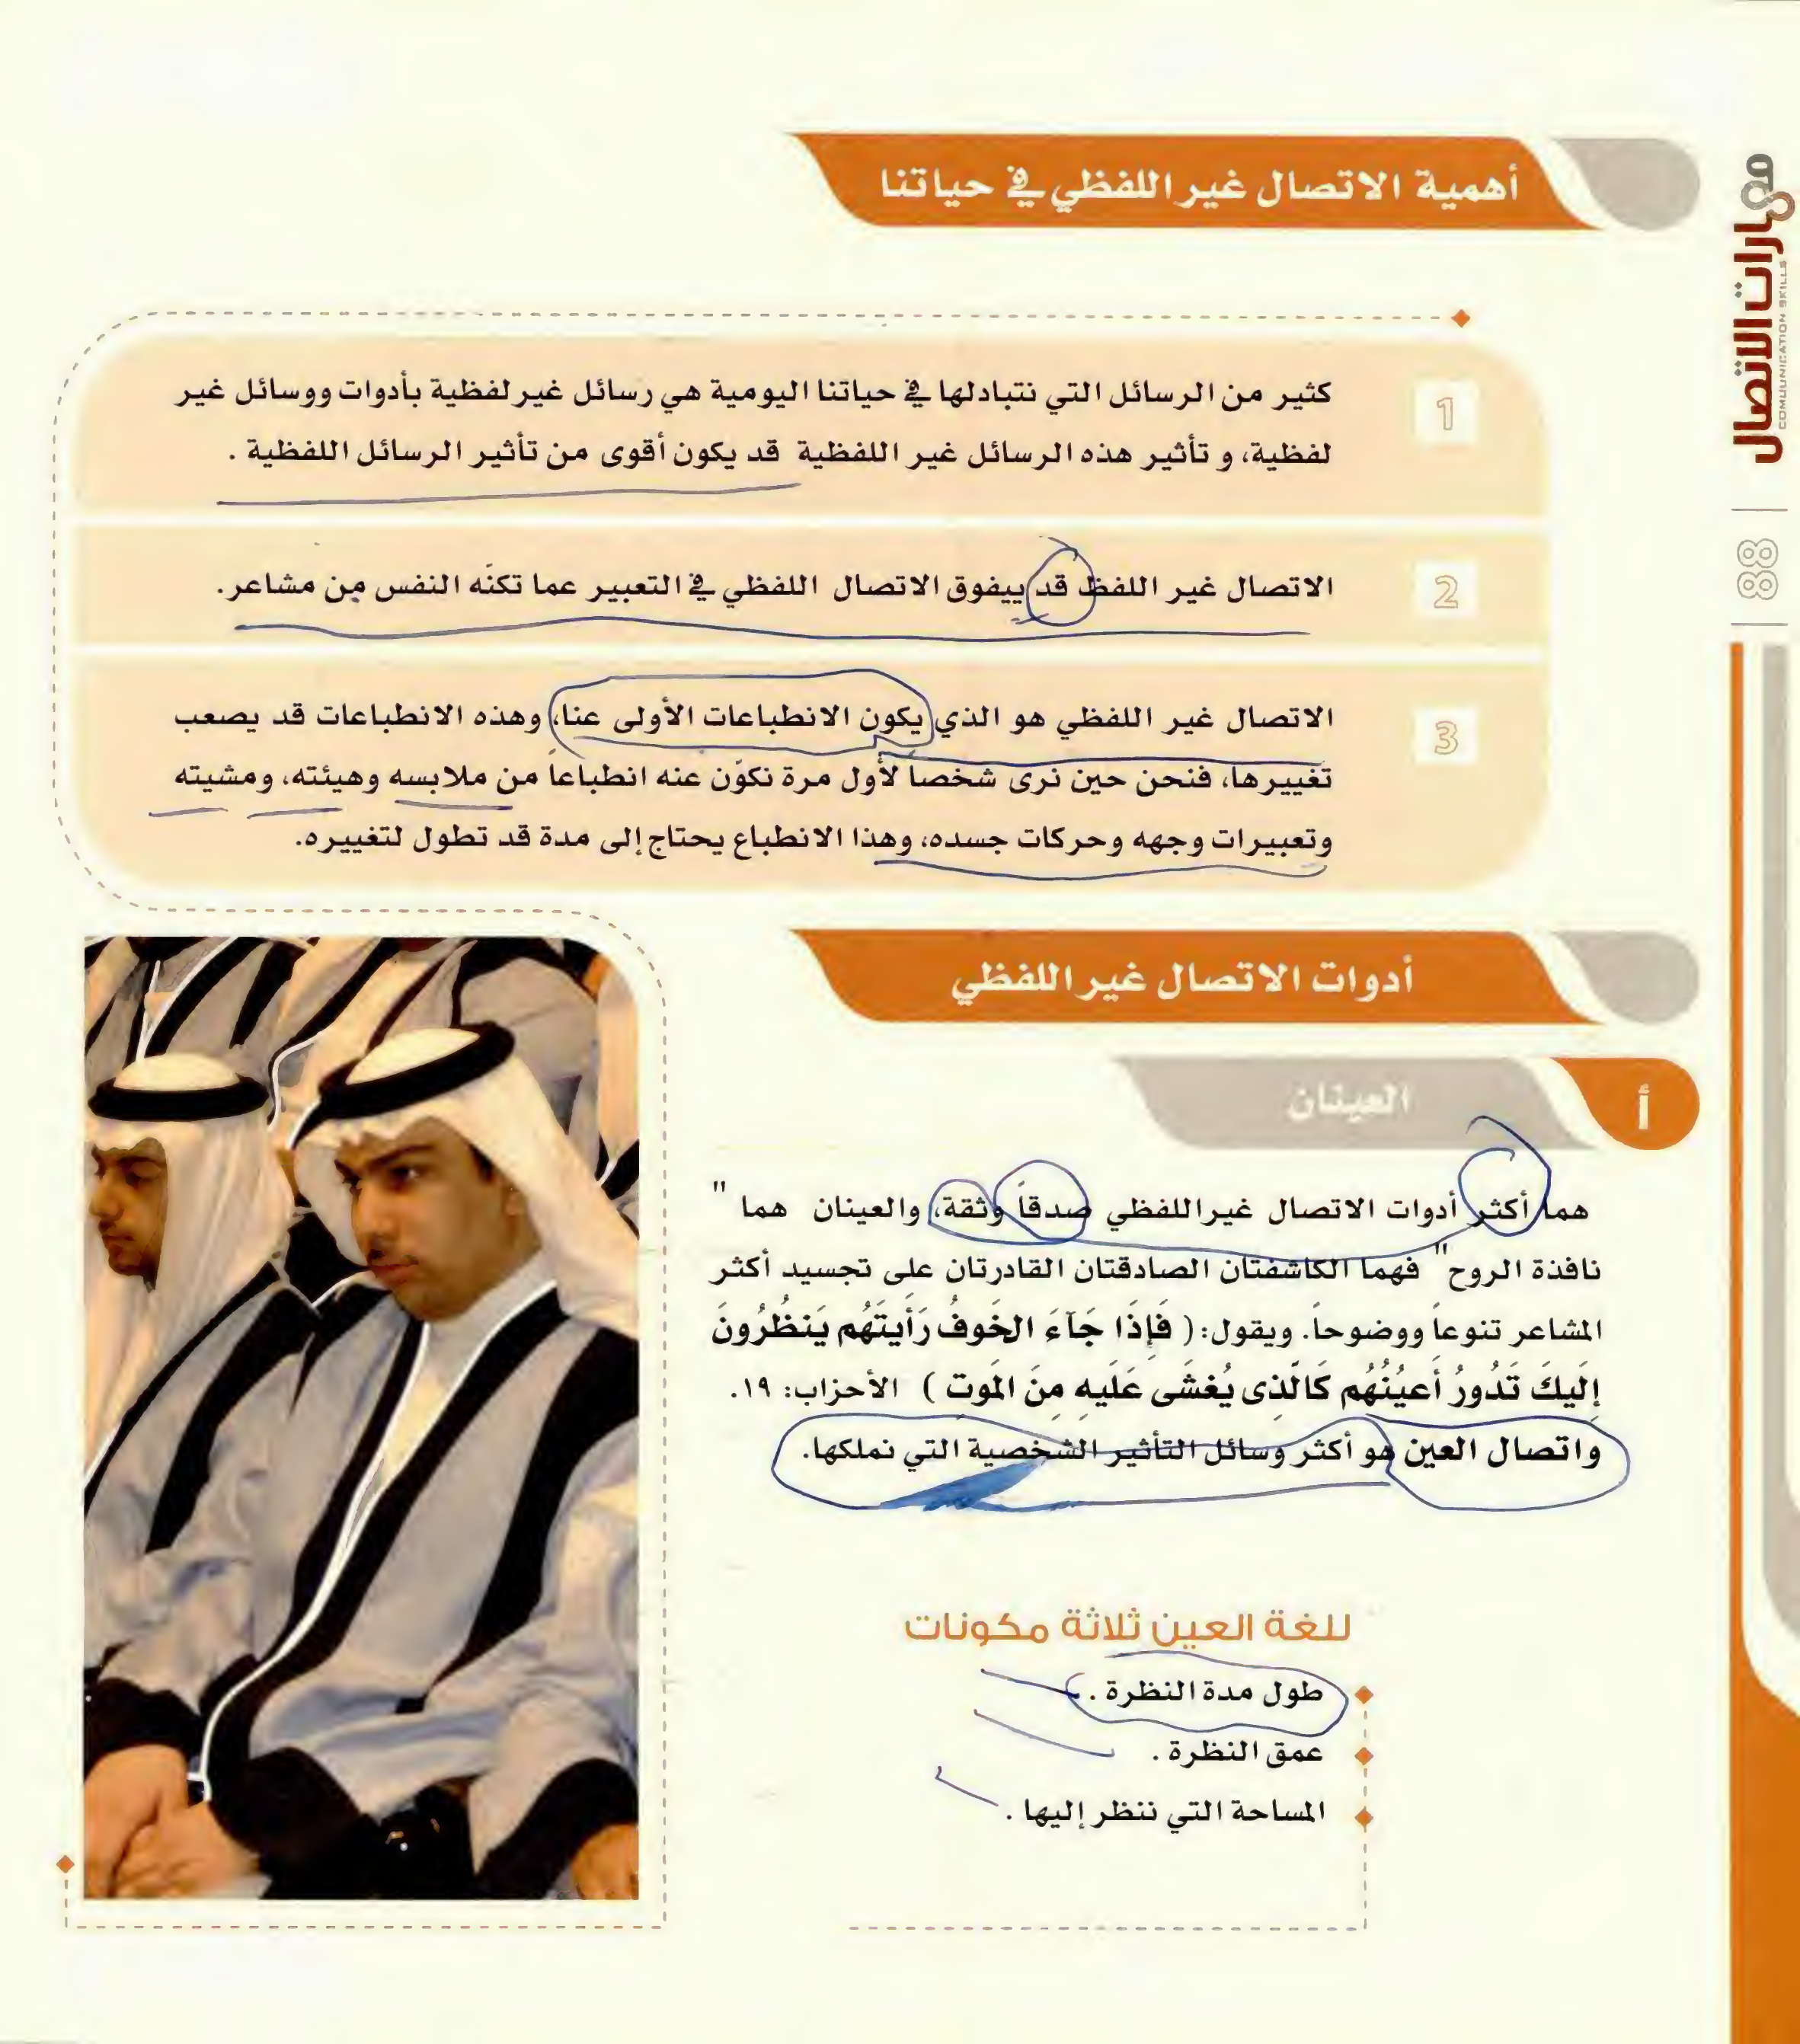 مهارات الاتصال
COMUUNICATION SKILLS
88
أهمية الاتصال غير اللفظي في حياتنا
1
كثير من الرسائل التي نتبادلها في حياتنا اليومية هي رسائل غير لفظية بأدوات ووسائل غير
لفظية، و تأثير هذه الرسائل غير اللفظية قد يكون أقوى من تأثير الرسائل اللفظية .
2
الاتصال غير اللفظ قد ييفوق الاتصال اللفظي في التعبير عما تكنّه النفس من مشاعر.
3
الاتصال غير اللفظي هو الذي يكون الانطباعات الأولى عنا، وهذه الانطباعات قد يصعب
تغييرها، فنحن حين نرى شخصاً لأول مرة نكوّن عنه انطباعاً من ملابسه وهيئته، ومشيته
وتعبيرات وجهه وحركات جسده، وهذا الانطباع يحتاج إلى مدة قد تطول لتغييره.
أدوات الاتصال غير اللفظي
أ
العينان
هما أكثر أدوات الاتصال غير اللفظي صدقاً وثقة، والعينان هما "
نافذة الروح" فهما الكاشفتان الصادقتان القادرتان على تجسيد أكثر
المشاعر تنوعاً ووضوحاً. ويقول: ( فَإِذَا جَآءَ الخَوفُ رَأَيتَهُم يَنظُرُونَ
إِلَيكَ تَدُورُ أَعيُنُهُم كَالَّذِى يُغشَى عَلَيهِ مِنَ المَوتِ ) الأحزاب: ١٩.
واتصال العين هو أكثر وسائل التأثير الشخصية التي نملكها.
للغة العين ثلاثة مكونات
طول مدة النظرة .
عمق النظرة .
المساحة التي ننظر إليها .